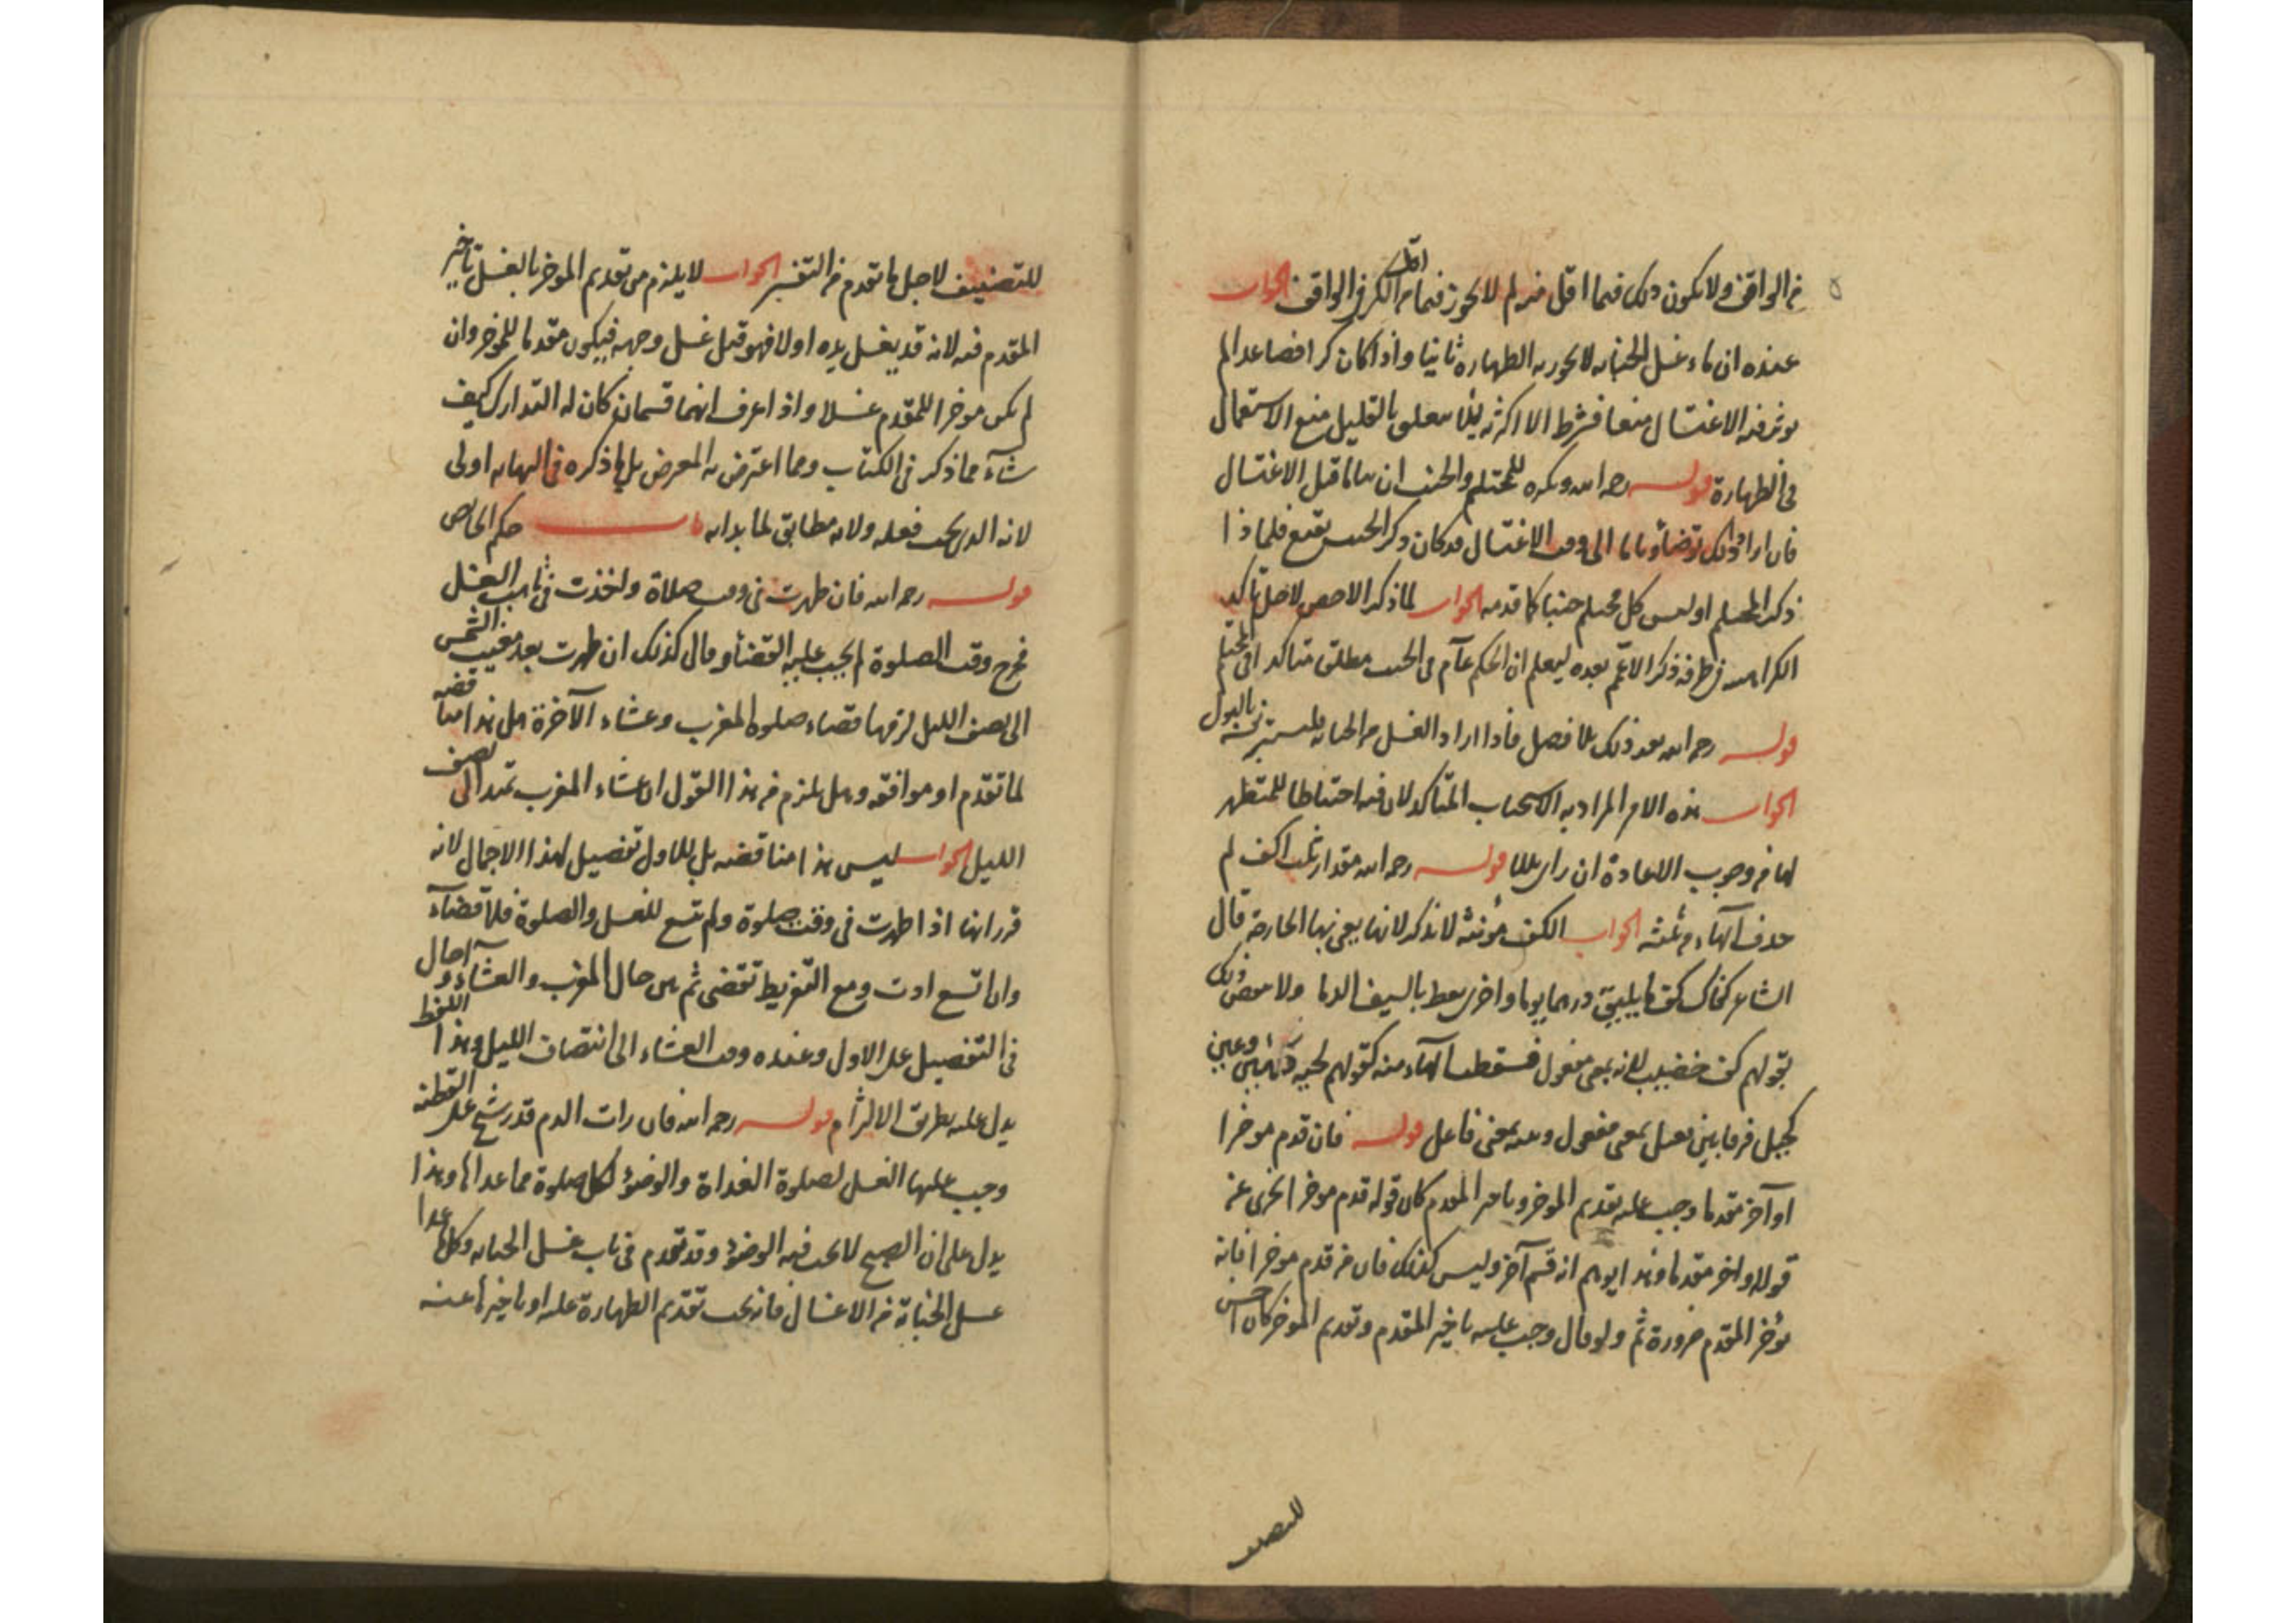 من الواقف ولا يكون ذلك فيما اقل منه لم لا يجوز فيما من الكر في الواقف الجواب
عنده ان ماء غسل الجنابه لا يجوز به الطهاره ثانيا واذا كان كرا فصاعدا لم
يوثر فيه الاغتسال منعا فشرط الاكثريه لئلا يتعلق بالقليل منع الاستعمال
في الطهارة قوله رحمه الله ويكره للمحتلم والجنب ان يناما قبل الاغتسال
فان ارادا ذلك توضأ وناما الى وقت الاغتسال قد كان ذكر الجنب يقنع فلماذا
ذكر المحتلم اوليس كل محتلم جنبا كما قدمه الجواب لما ذكر الاخص لاجل تأكيد
الكراهيه في طرفه ذكر الاعم بعده ليعلم ان الحكم عآم في الجنب مطلق متاكد في المحتلم
قوله رحمه الله بعد ذلك بلا فصل فأذا اراد الغسل من الجنابه فليستبرئ بالبول
الجواب هذه الامر المراد به الاستحباب المتأكد لان فيه احتياطا للمتطهر
لها من وجوب الاعادة ان راى بللا قوله رحمه الله مقدار ثلث اكف لم
حذف الهاء من ثلثه الجواب الكف مؤنثه لا تذكر لانها يعنى بها الجارحة قال
الشاعر كفاك كف ما يليق درهما يوما واخرى يعط بالسيف الدما ولا ينقض ذلك
بقولهم كف خضيب لانه بمعنى مفعول فسقطت الهاء منه كقولهم لحيه دهين وعين
كحيل فرقا بين فعيل بمعنى مفعول وبينه بمعنى فاعل قوله فان قدم موخرا
او آخر مقدما وجب عليه تقديم الموخر وتاخير المقدم كان قوله قدم موخرا يجزى عن
قوله او اخر مقدما وهذا يوهم انه قسم آخر وليس كذلك فان من قدم موخرا فانه
يؤخر المقدم ضرورة ثم ولو قال وجب عليه تاخير المقدم وتقديم الموخر كان احسن
للتصنيف
للتصنيف لاجل ما تقدم من التفسير الجواب لا يلزم من تقديم الموخر بالغسل تأخير
المقدم فيه لانه قد يغسل يده اولا فهو قبل غسل وجهه فيكون مقدما للموخر وان
لم يكن موخرا للمقدم غسلا واذا عرف انهما قسمان كان له التدارك كيف
شآء مما ذكر في الكتاب ومما اعترض به المعرض بل ما ذكره في النهايه اولى
لانه الذى يجب فعله ولانه مطابق لما بدا به باب حكم الحائض
قوله رحمه الله فان طهرت في وقت صلاة واخذت في تاهب الغسل
فخرج وقت الصلوة لم يجب عليه القضأ وقال كذلك ان طهرت بعد مغيب الشمس
الى نصف الليل لزمها قضاء صلوة المغرب وعشاء الآخرة هل هذا مناقضه
لما تقدم او موافقه وهل يلزم من هذا القول ان عشاء المغرب تمتد الى نصف
الليل الجواب ليس هذا مناقضه بل الاول تفصيل لهذا الاجمال لانه
قرر انها اذا طهرت في وقت صلوة ولم تتسع للغسل والصلوة فلا قضآء
وان اتسع ادت ومع التفريط تقضى ثم بين حال المغرب والعشاء و احال
في التفصيل على الاول وعنده وقت العشاء الى انتصاف الليل وهذا اللفظ
يدل عليه بطريق الالتزام قوله رحمه الله فان رات الدم قد رشح على القطنه
وجب عليها الغسل لصلوة الغداة والوضؤ لكل صلوة مما عداها وهذا
يدل على ان الصبح لا يجب فيه الوضؤ وقد تقدم في باب غسل الجنابه وكل ما عدا
غسل الجنابة من الاغسال فانه يجب تقديم الطهارة عليه او تاخيرها عنه